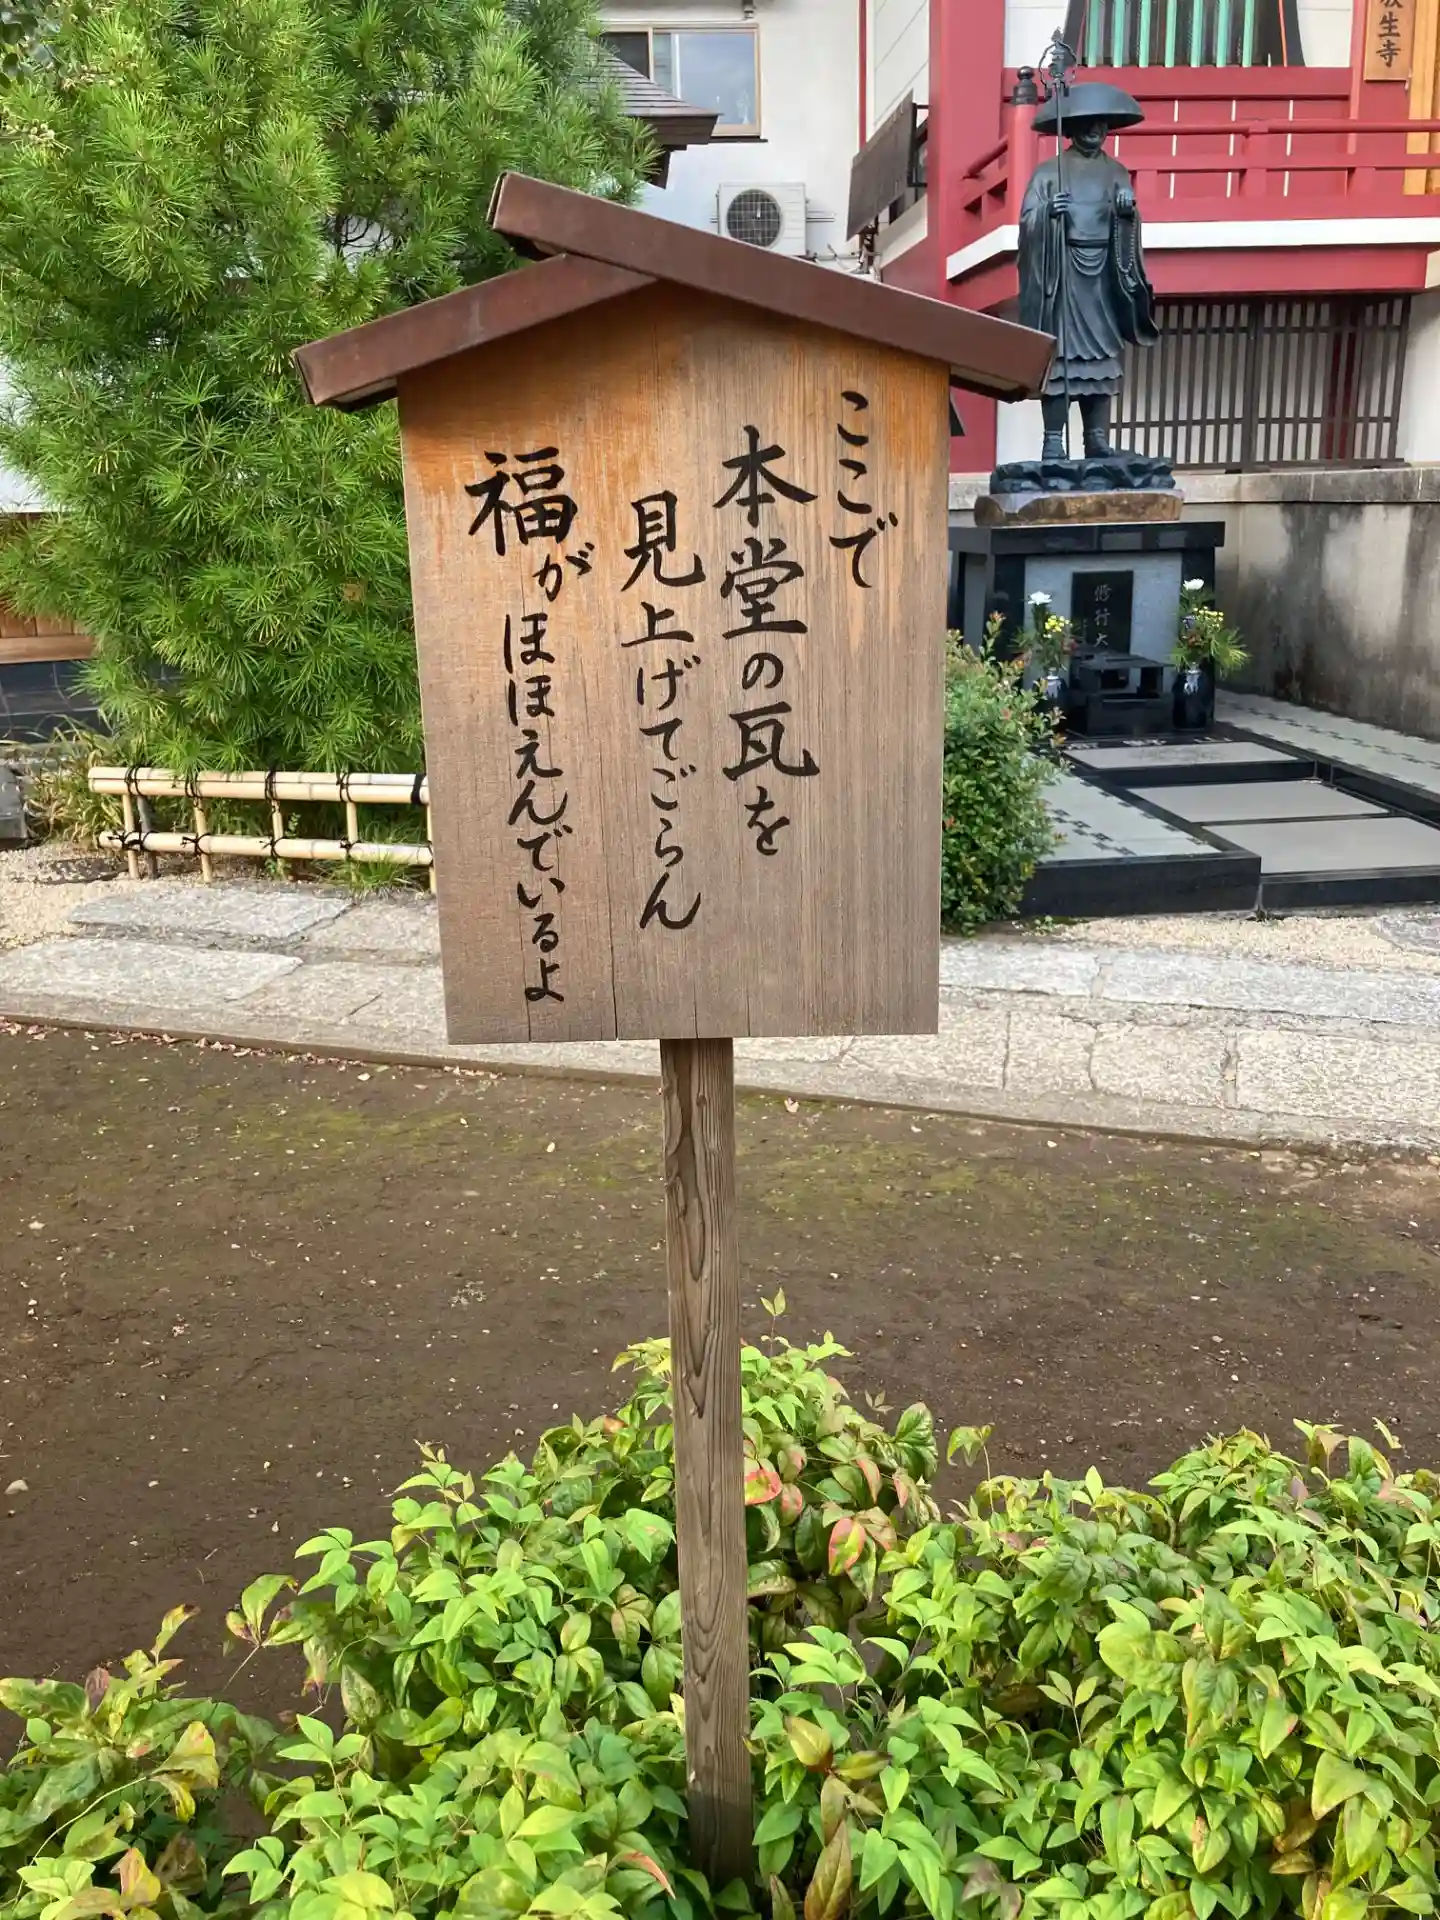 ここで
本堂の瓦を
見上げてごらん
福がほほえんでいるよ
生寺
修行大